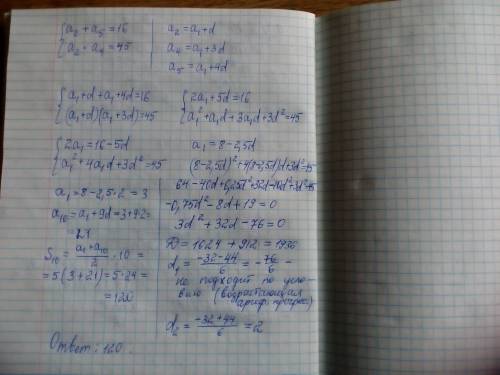 {a₂ + a₅ = 16
{a₂ · a₄ = 45
a₂ = a₁ + d
a₄ = a₁ + 3d
a₅ = a₁ + 4d
{a₁ + d + a₁ + 4d = 16
{(a₁ + d)(a₁ + 3d) = 45
{2a₁ + 5d = 16
{a₁² + a₁d + 3a₁d + 3d² = 45
{2a₁ = 16 - 5d
{a₁² + 4a₁d + 3d² = 45
a₁ = 8 - 2,5d
(8 - 2,5d)² + 4(8 - 2,5d)d + 3d² = 45
64 - 40d + 6,25d² + 32d - 10d² + 3d² = 45
-0,75d² - 8d + 19 = 0
3d² + 32d - 76 = 0
D = 1024 + 912 = 1936
d₁ = (-32 - 44)/6 = -76/6 -
не подходит по усло-
вию (возрастающая
ариф. прогрес)
d₂ = (-32 + 44)/6 = 2
a₁ = 8 - 2,5 · 2 = 3
a₁₀ = a₁ + 9d = 3 + 9·2 =
= 21
S₁₀ = (a₁ + a₁₀)/2 · 10 =
= 5(3 + 21) = 5 · 24 =
= 120
Ответ: 120.